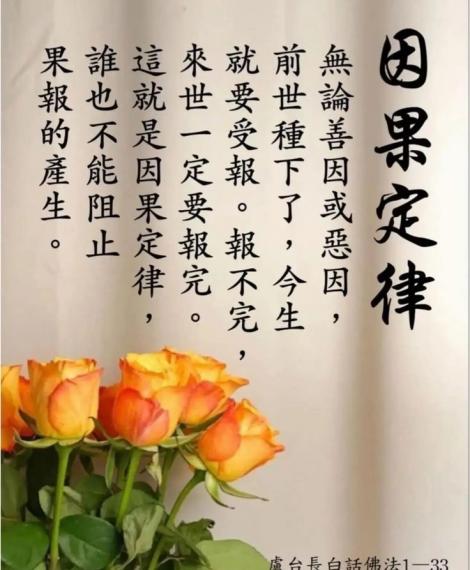 因果定律
無論善因或惡因，
前世種下了，今生
就要受報。報不完，
來世一定要報完。
這就是因果定律，
誰也不能阻止
果報的產生。
盧台長白話佛法1—33